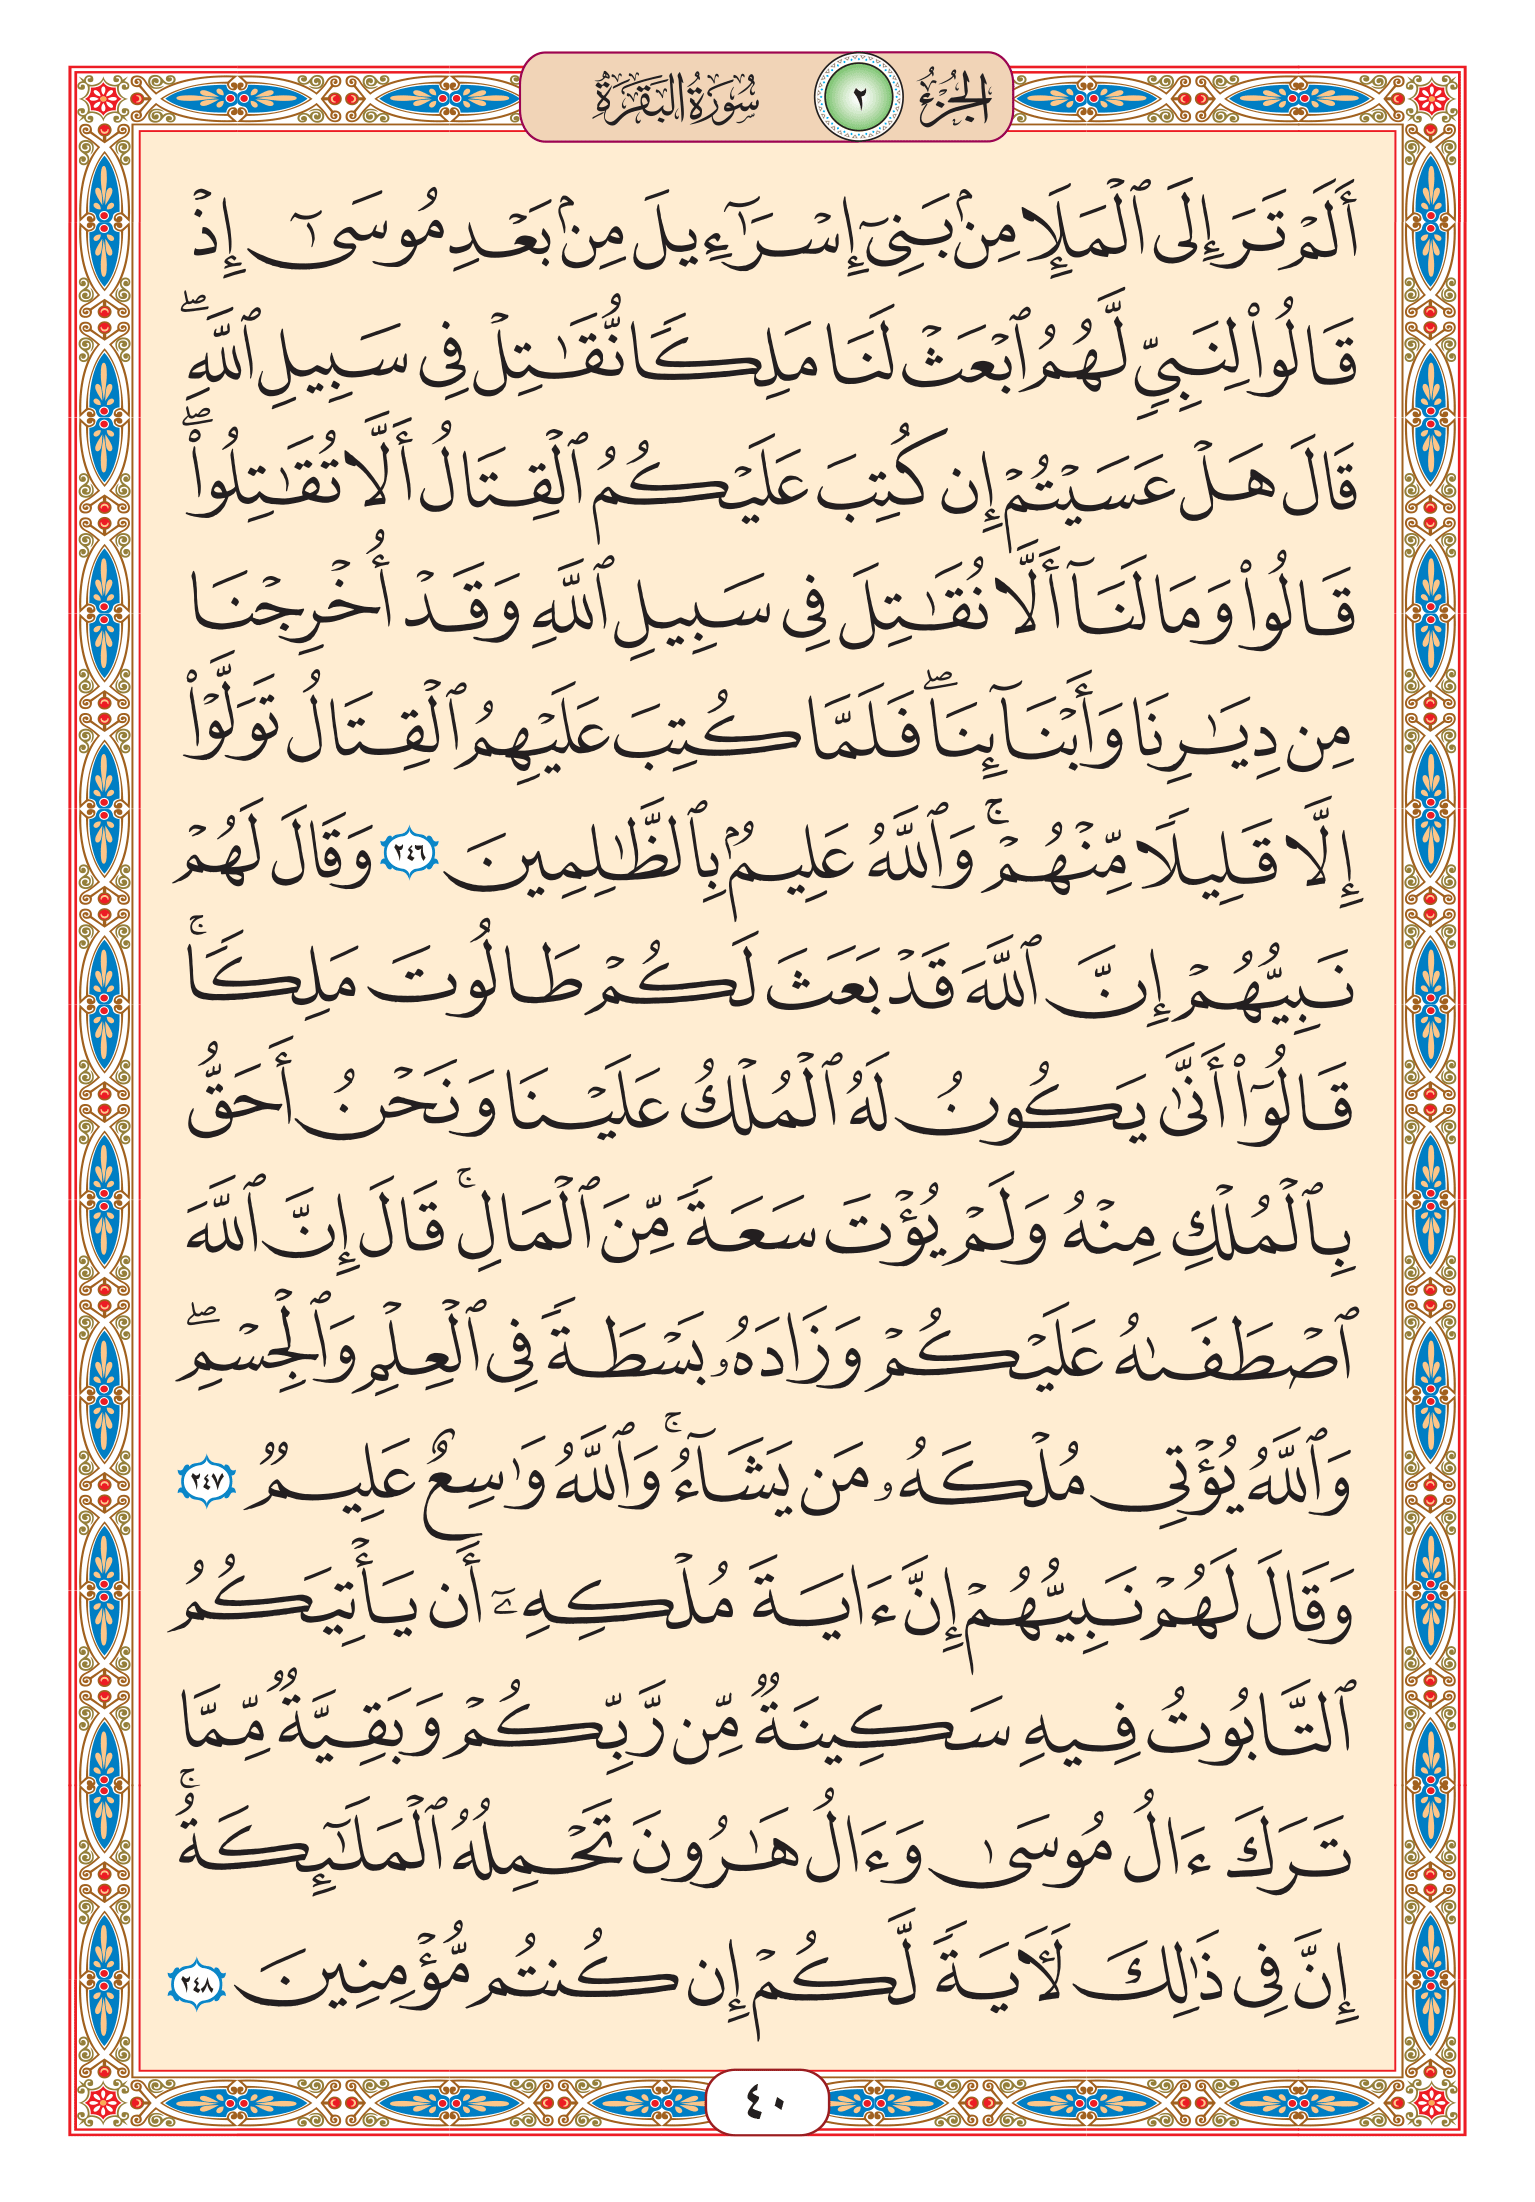 الجزء ٢ سورة البقرة
أَلَمْ تَرَ إِلَى ٱلْمَلَإِ مِنۢ بَنِىٓ إِسْرَٰٓءِيلَ مِنۢ بَعْدِ مُوسَىٰٓ إِذْ
قَالُوا۟ لِنَبِىٍّ لَّهُمُ ٱبْعَثْ لَنَا مَلِكًا نُّقَٰتِلْ فِى سَبِيلِ ٱللَّهِ ۖ
قَالَ هَلْ عَسَيْتُمْ إِن كُتِبَ عَلَيْكُمُ ٱلْقِتَالُ أَلَّا تُقَٰتِلُوا۟ ۖ
قَالُوا۟ وَمَا لَنَآ أَلَّا نُقَٰتِلَ فِى سَبِيلِ ٱللَّهِ وَقَدْ أُخْرِجْنَا
مِن دِيَٰرِنَا وَأَبْنَآئِنَا ۖ فَلَمَّا كُتِبَ عَلَيْهِمُ ٱلْقِتَالُ تَوَلَّوْا۟
إِلَّا قَلِيلًا مِّنْهُمْ ۚ وَٱللَّهُ عَلِيمٌۢ بِٱلظَّٰلِمِينَ ٢٤٦ وَقَالَ لَهُمْ
نَبِيُّهُمْ إِنَّ ٱللَّهَ قَدْ بَعَثَ لَكُمْ طَالُوتَ مَلِكًا ۚ
قَالُوٓا۟ أَنَّىٰ يَكُونُ لَهُ ٱلْمُلْكُ عَلَيْنَا وَنَحْنُ أَحَقُّ
بِٱلْمُلْكِ مِنْهُ وَلَمْ يُؤْتَ سَعَةً مِّنَ ٱلْمَالِ ۚ قَالَ إِنَّ ٱللَّهَ
ٱصْطَفَىٰهُ عَلَيْكُمْ وَزَادَهُۥ بَسْطَةً فِى ٱلْعِلْمِ وَٱلْجِسْمِ ۖ
وَٱللَّهُ يُؤْتِى مُلْكَهُۥ مَن يَشَآءُ ۚ وَٱللَّهُ وَٰسِعٌ عَلِيمٌ ٢٤٧
وَقَالَ لَهُمْ نَبِيُّهُمْ إِنَّ ءَايَةَ مُلْكِهِۦٓ أَن يَأْتِيَكُمُ
ٱلتَّابُوتُ فِيهِ سَكِينَةٌ مِّن رَّبِّكُمْ وَبَقِيَّةٌ مِّمَّا
تَرَكَ ءَالُ مُوسَىٰ وَءَالُ هَٰرُونَ تَحْمِلُهُ ٱلْمَلَٰٓئِكَةُ ۚ
إِنَّ فِى ذَٰلِكَ لَءَايَةً لَّكُمْ إِن كُنتُم مُّؤْمِنِينَ ٢٤٨
٤٠